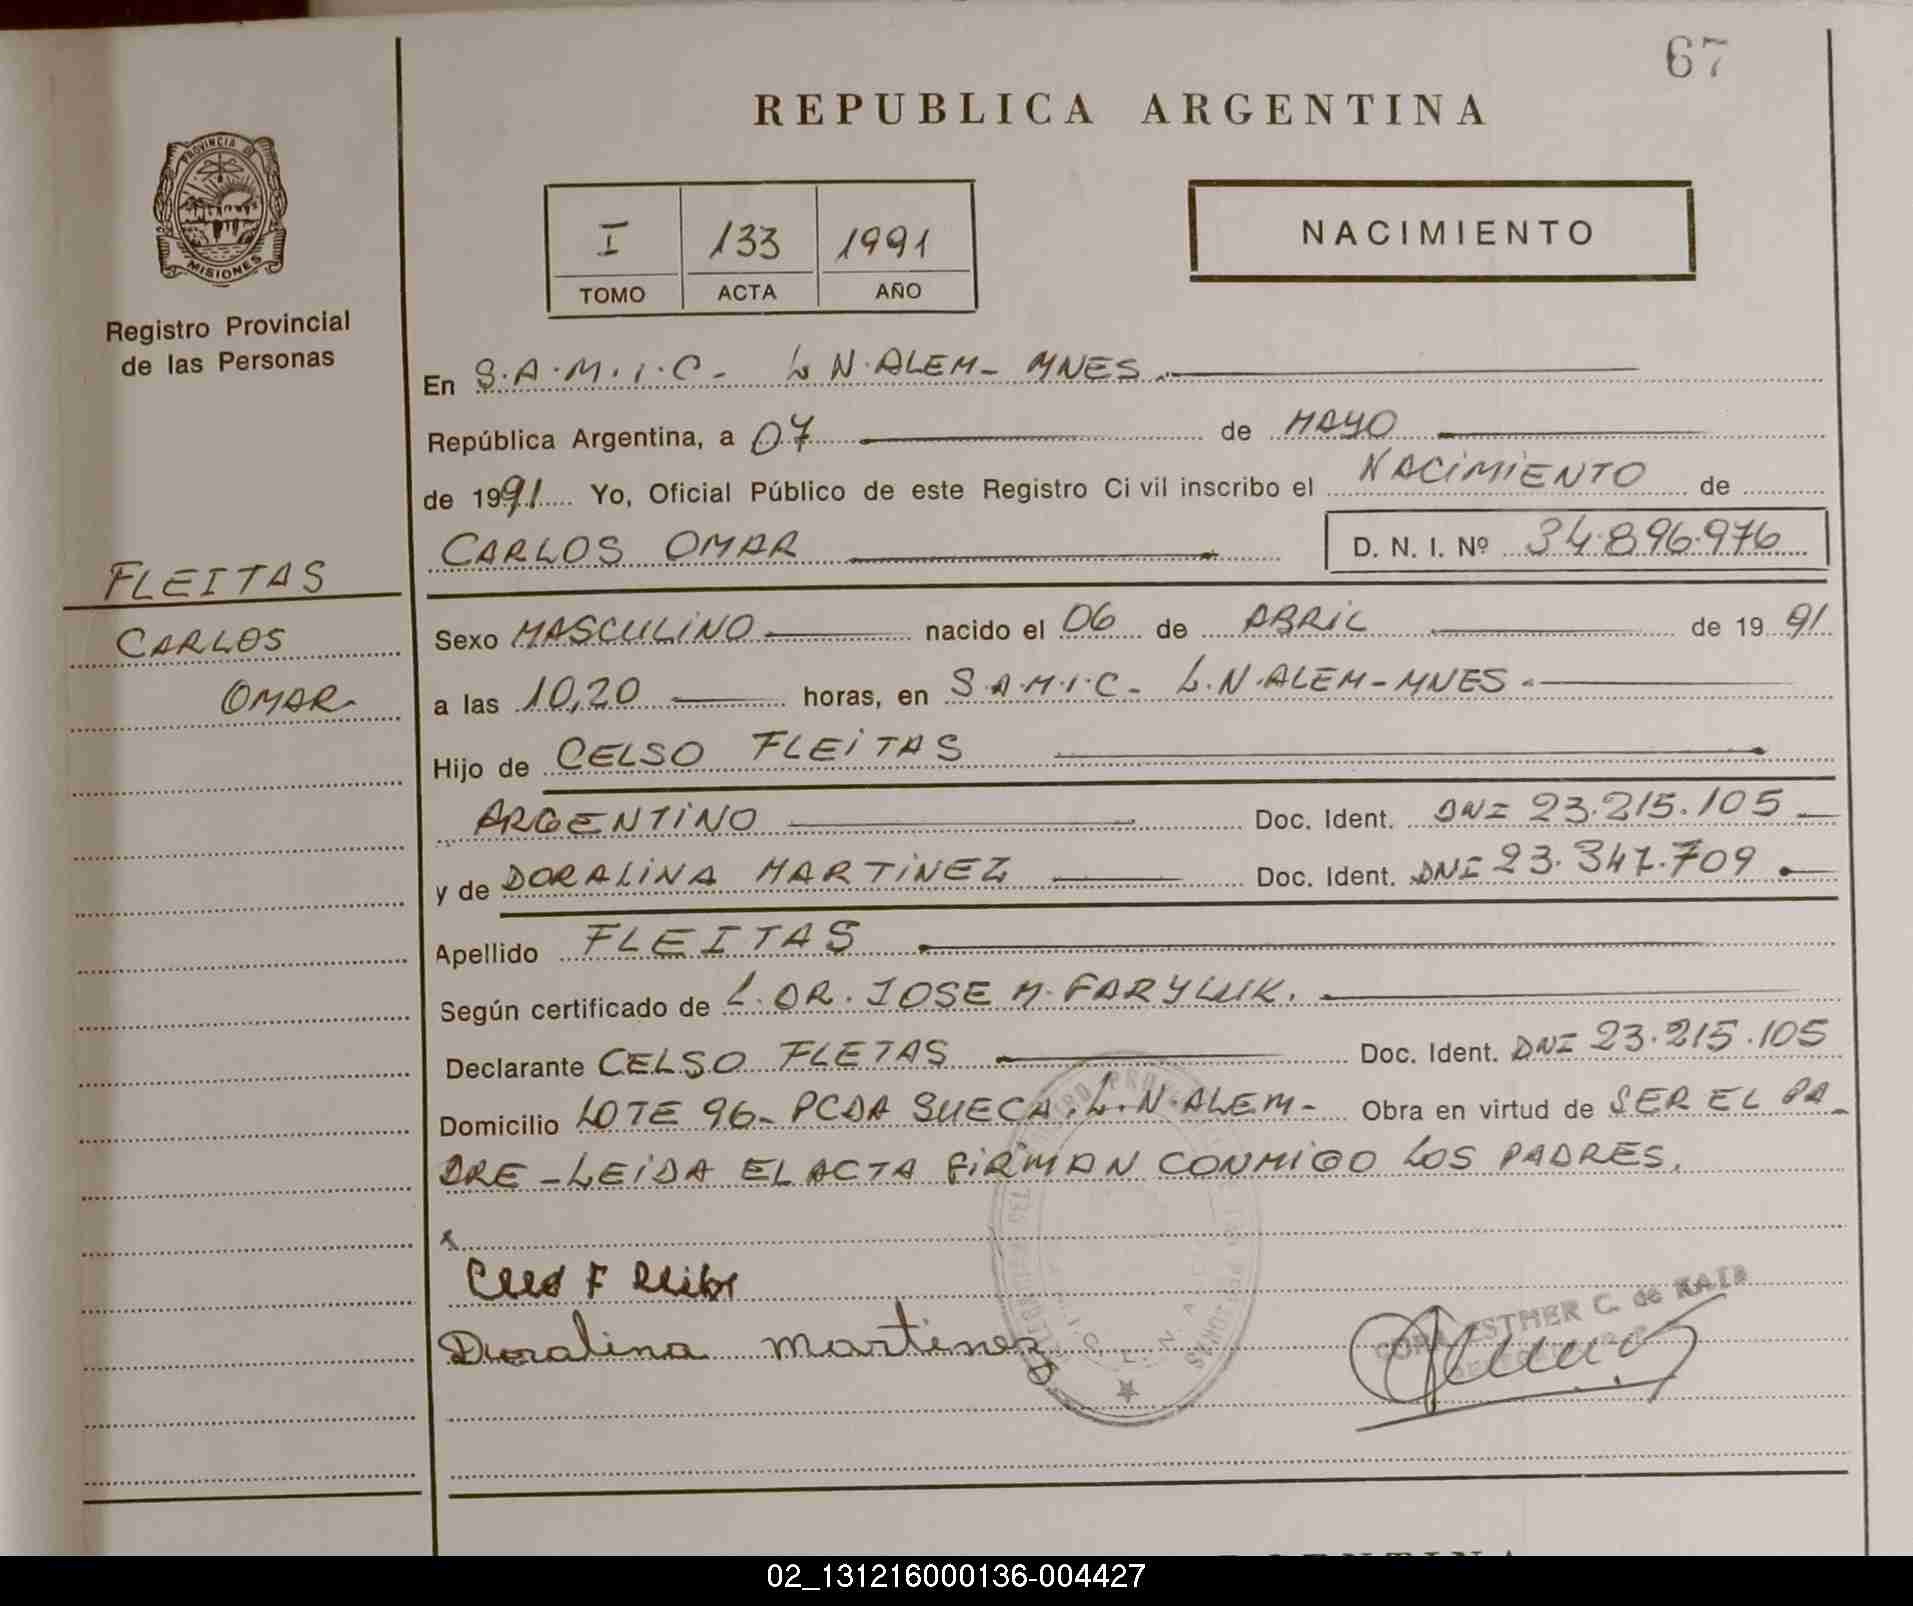 67
REPUBLICA ARGENTINA
PROVINCIA DE
MISIONES
Registro Provincial
de las Personas
I 133 1991
TOMO ACTA AÑO
NACIMIENTO
En S.A.M.I.C- L N.ALEM- MNES.
República Argentina, a 07 de MAYO
de 1991 Yo, Oficial Público de este Registro Ci vil inscribo el NACIMIENTO de
CARLOS OMAR D. N. I. Nº 34.896.976
FLEITAS
CARLOS
OMAR
Sexo MASCULINO nacido el 06 de ABRIL de 19 91
a las 10,20 horas, en S.A.M.I.C- L.N.ALEM-MNES-
Hijo de CELSO FLEITAS
ARGENTINO Doc. Ident. DNI 23.215.105
y de DORALINA MARTINEZ Doc. Ident. DNI 23.347.709
Apellido FLEITAS
Según certificado de L. DR. JOSE M. FARYLUK.
Declarante CELSO FLETAS Doc. Ident. DNI 23.215.105
Domicilio LOTE 96- PCDA SUECA. L.N.ALEM- Obra en virtud de SER EL PA_
DRE -LEIDA EL ACTA FIRMAN CONMIGO LOS PADRES.
Doralina Martinez
ESTHER C. de
02_131216000136-004427